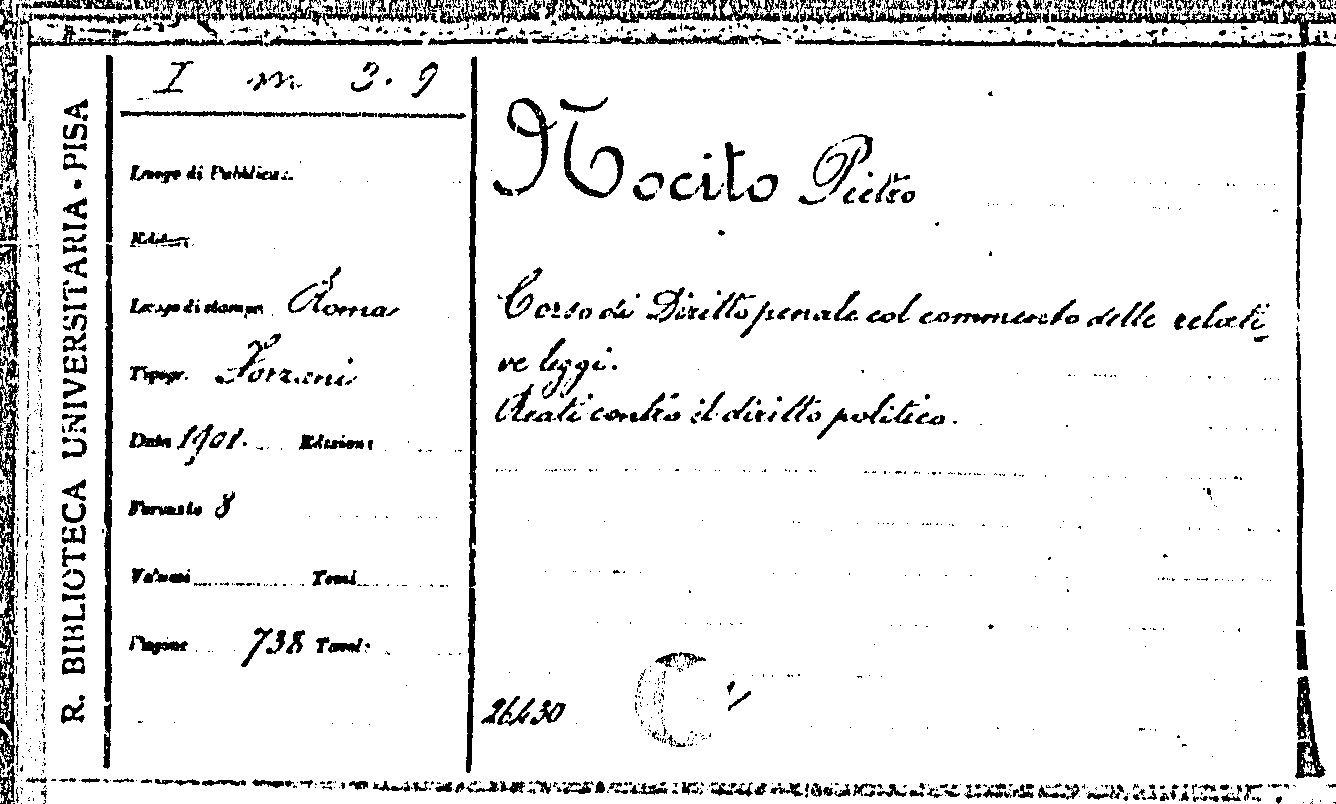 R. BIBLIOTECA UNIVERSITARIA - PISA
I m 3. 9
Luogo di Pubblicaz.
Editore
Luogo di stampa Roma
Tipogr. Forzani
Data 1901. Edizione
Formato 8
Volumi Tomi
Pagine 738 Tavole
Nocito Pietro
Corso di Diritto penale col commento delle relati-
ve leggi.
Reati contro il diritto politico.
26430